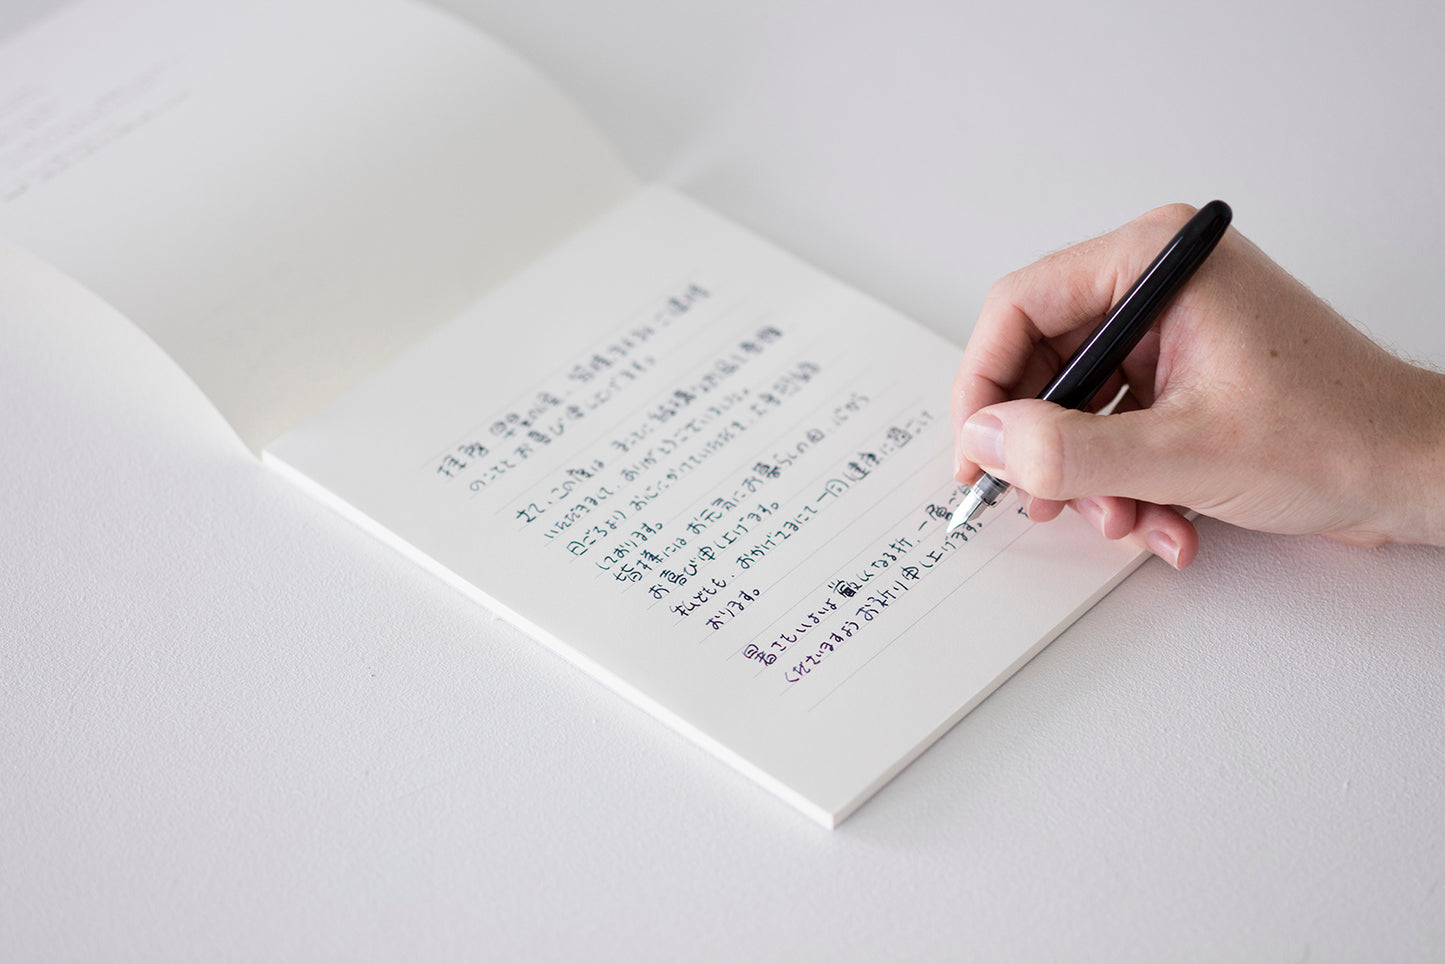 拝啓
のこととお喜び申し上げます。
さて、この度は、まことに結構なお品を
いただきまして、ありがとうございました。
日ごろより お心にかけていただき、
しております。
皆様にはお元気にお暮らしの由、心から
お喜び申し上げます。
私どもも、おかげさまにて一同健康に過ごして
おります。
暑さもいよいよ厳しくなる折、一層ご
くださいますようお祈り申し上げます。